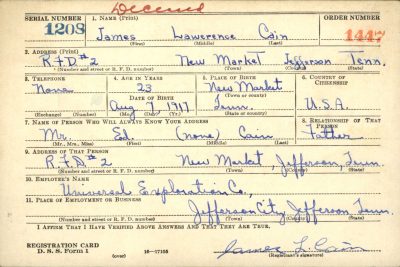 Deceased
SERIAL NUMBER 1. NAME (Print) ORDER NUMBER
1208 James Lawerence Cain 1447
(First) (Middle) (Last)
2. ADDRESS (Print)
R.F.D #2 New Market Jefferson Tenn.
(Number and street or R. F. D. number) (Town) (County) (State)
3. TELEPHONE 4. AGE IN YEARS 5. PLACE OF BIRTH 6. COUNTRY OF CITIZENSHIP
None 23 New Market
DATE OF BIRTH (Town or county)
Aug 7, 1917 Tenn. U.S.A.
(Exchange) (Number) (Mo.) (Day) (Yr.) (State or country)
7. NAME OF PERSON WHO WILL ALWAYS KNOW YOUR ADDRESS 8. RELATIONSHIP OF THAT PERSON
Mr. Ed. (none) Cain Father
(Mr., Mrs., Miss) (First) (Middle) (Last)
9. ADDRESS OF THAT PERSON
R.F.D #2 New Market, Jefferson, Tenn.
(Number and street or R. F. D. number) (Town) (County) (State)
10. EMPLOYER'S NAME
Universal Exploration Co.,
11. PLACE OF EMPLOYMENT OR BUSINESS
Jefferson City Jefferson Tenn.
(Number and street or R. F. D. number) (Town) (County) (State)
I AFFIRM THAT I HAVE VERIFIED ABOVE ANSWERS AND THAT THEY ARE TRUE.
REGISTRATION CARD
D. S. S. Form 1 (over) 16-17105 James L. Cain
(Registrant's signature)